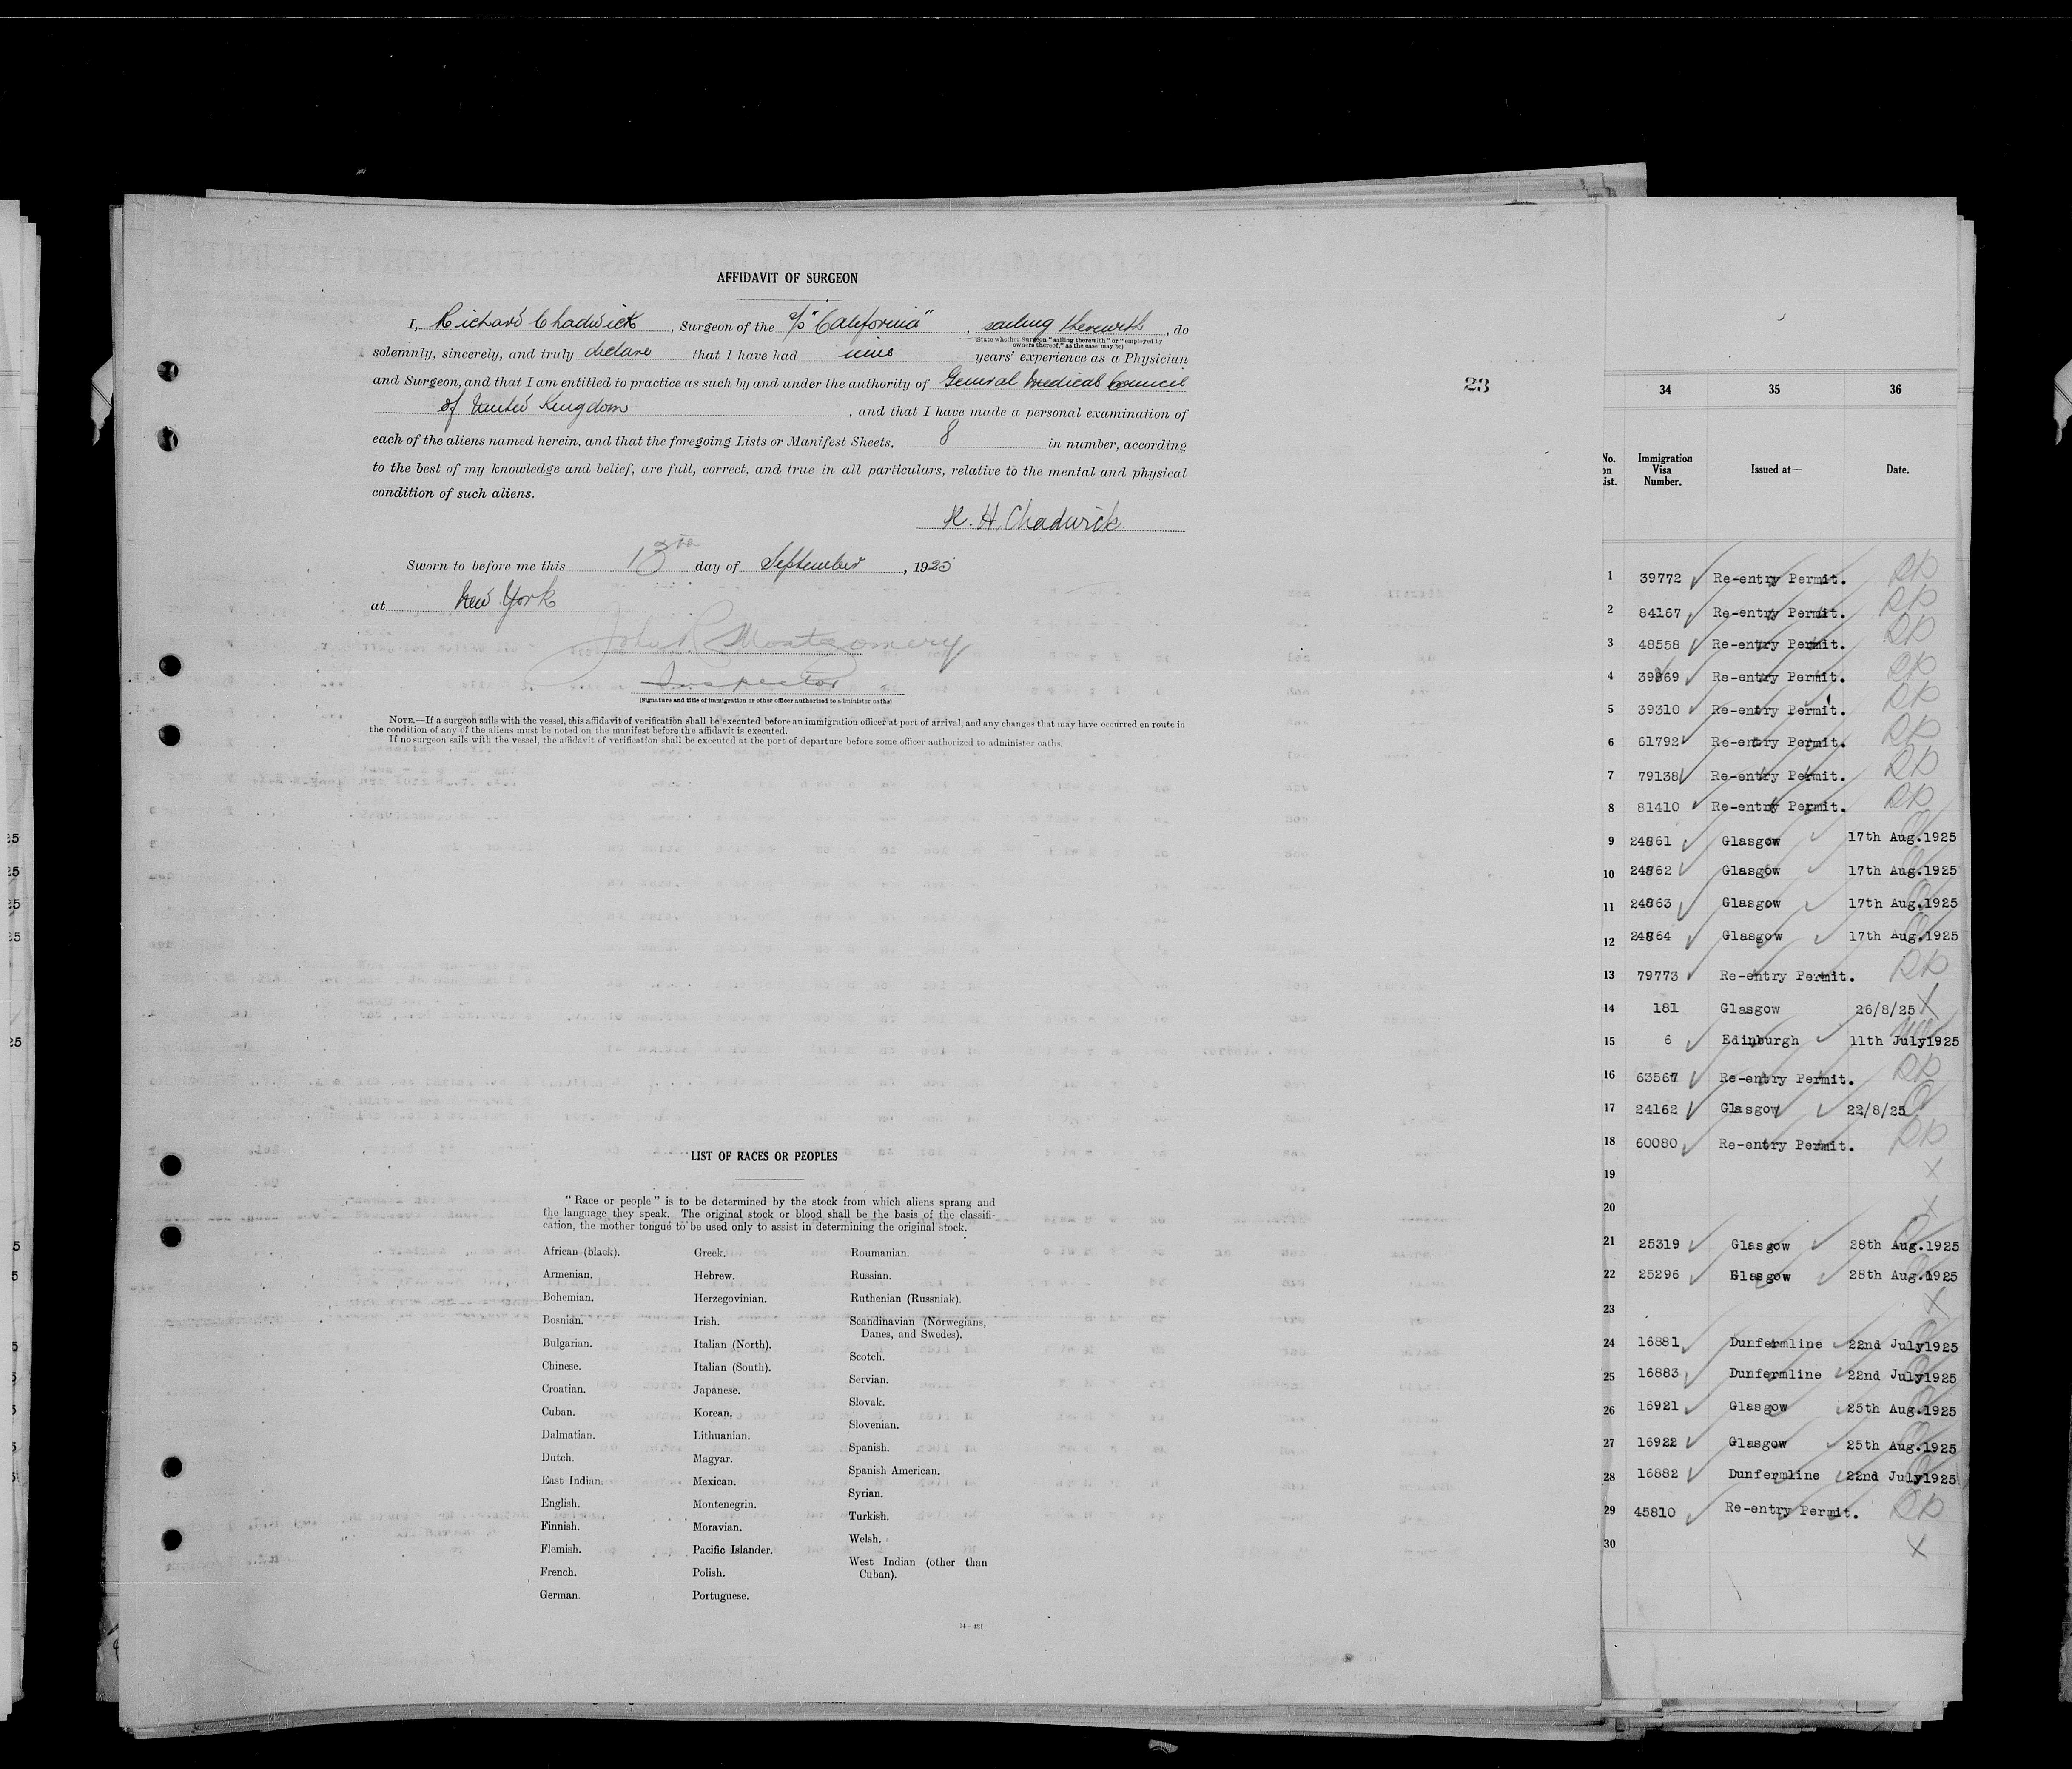 AFFIDAVIT OF SURGEON
I, Richard Chadwick, Surgeon of the s/s "California", sailing therewith, do
(State whether Surgeon "sailing therewith" or "employed by
owners thereof," as the case may be)
solemnly, sincerely, and truly declare that I have had nine years' experience as a Physician
and Surgeon, and that I am entitled to practice as such by and under the authority of General Medical Council
of United Kingdom, and that I have made a personal examination of
each of the aliens named herein, and that the foregoing Lists or Manifest Sheets, 8 in number, according
to the best of my knowledge and belief, are full, correct, and true in all particulars, relative to the mental and physical
condition of such aliens.
R. H. Chadwick
Sworn to before me this 13th day of September, 1925
at New York
John R Montgomery
Inspector
(Signature and title of immigration or other officer authorized to administer oaths)
NOTE.—If a surgeon sails with the vessel, this affidavit of verification shall be executed before an immigration officer at port of arrival, and any changes that may have occurred en route in
the condition of any of the aliens must be noted on the manifest before the affidavit is executed.
If no surgeon sails with the vessel, the affidavit of verification shall be executed at the port of departure before some officer authorized to administer oaths.
23
LIST OF RACES OR PEOPLES
"Race or people" is to be determined by the stock from which aliens sprang and
the language they speak. The original stock or blood shall be the basis of the classifi-
cation, the mother tongue to be used only to assist in determining the original stock.
African (black).
Armenian.
Bohemian.
Bosnian.
Bulgarian.
Chinese.
Croatian.
Cuban.
Dalmatian.
Dutch.
East Indian.
English.
Finnish.
Flemish.
French.
German.
Greek.
Hebrew.
Herzegovinian.
Irish.
Italian (North).
Italian (South).
Japanese.
Korean.
Lithuanian.
Magyar.
Mexican.
Montenegrin.
Moravian.
Pacific Islander.
Polish.
Portuguese.
Roumanian.
Russian.
Ruthenian (Russniak).
Scandinavian (Norwegians,
Danes, and Swedes).
Scotch.
Servian.
Slovak.
Slovenian.
Spanish.
Spanish American.
Syrian.
Turkish.
Welsh.
West Indian (other than
Cuban).
14—431
34 35 36
No.
on
list.
Immigration
Visa
Number.
Issued at—
Date.
1 39772 Re-entry Permit. RP
2 84167 Re-entry Permit. RP
3 48558 Re-entry Permit. RP
4 39869 Re-entry Permit. RP
5 39310 Re-entry Permit. RP
6 61792 Re-entry Permit. RP
7 79138 Re-entry Permit. RP
8 81410 Re-entry Permit. RP
9 24861 Glasgow 17th Aug.1925
10 24862 Glasgow 17th Aug.1925
11 24863 Glasgow 17th Aug.1925
12 24864 Glasgow 17th Aug.1925
13 79773 Re-entry Permit. RP
14 181 Glasgow 26/8/25 X
15 6 Edinburgh 11th July1925
16 63567 Re-entry Permit. RP
17 24162 Glasgow 22/8/25
18 60080 Re-entry Permit. RP
19 X
20 X
21 25319 Glasgow 28th Aug.1925
22 25296 Glasgow 28th Aug.1925
23 X
24 16881 Dunfermline 22nd July1925
25 16883 Dunfermline 22nd July1925
26 16921 Glasgow 25th Aug.1925
27 16922 Glasgow 25th Aug.1925
28 16882 Dunfermline 22nd July1925
29 45810 Re-entry Permit. RP
30 X